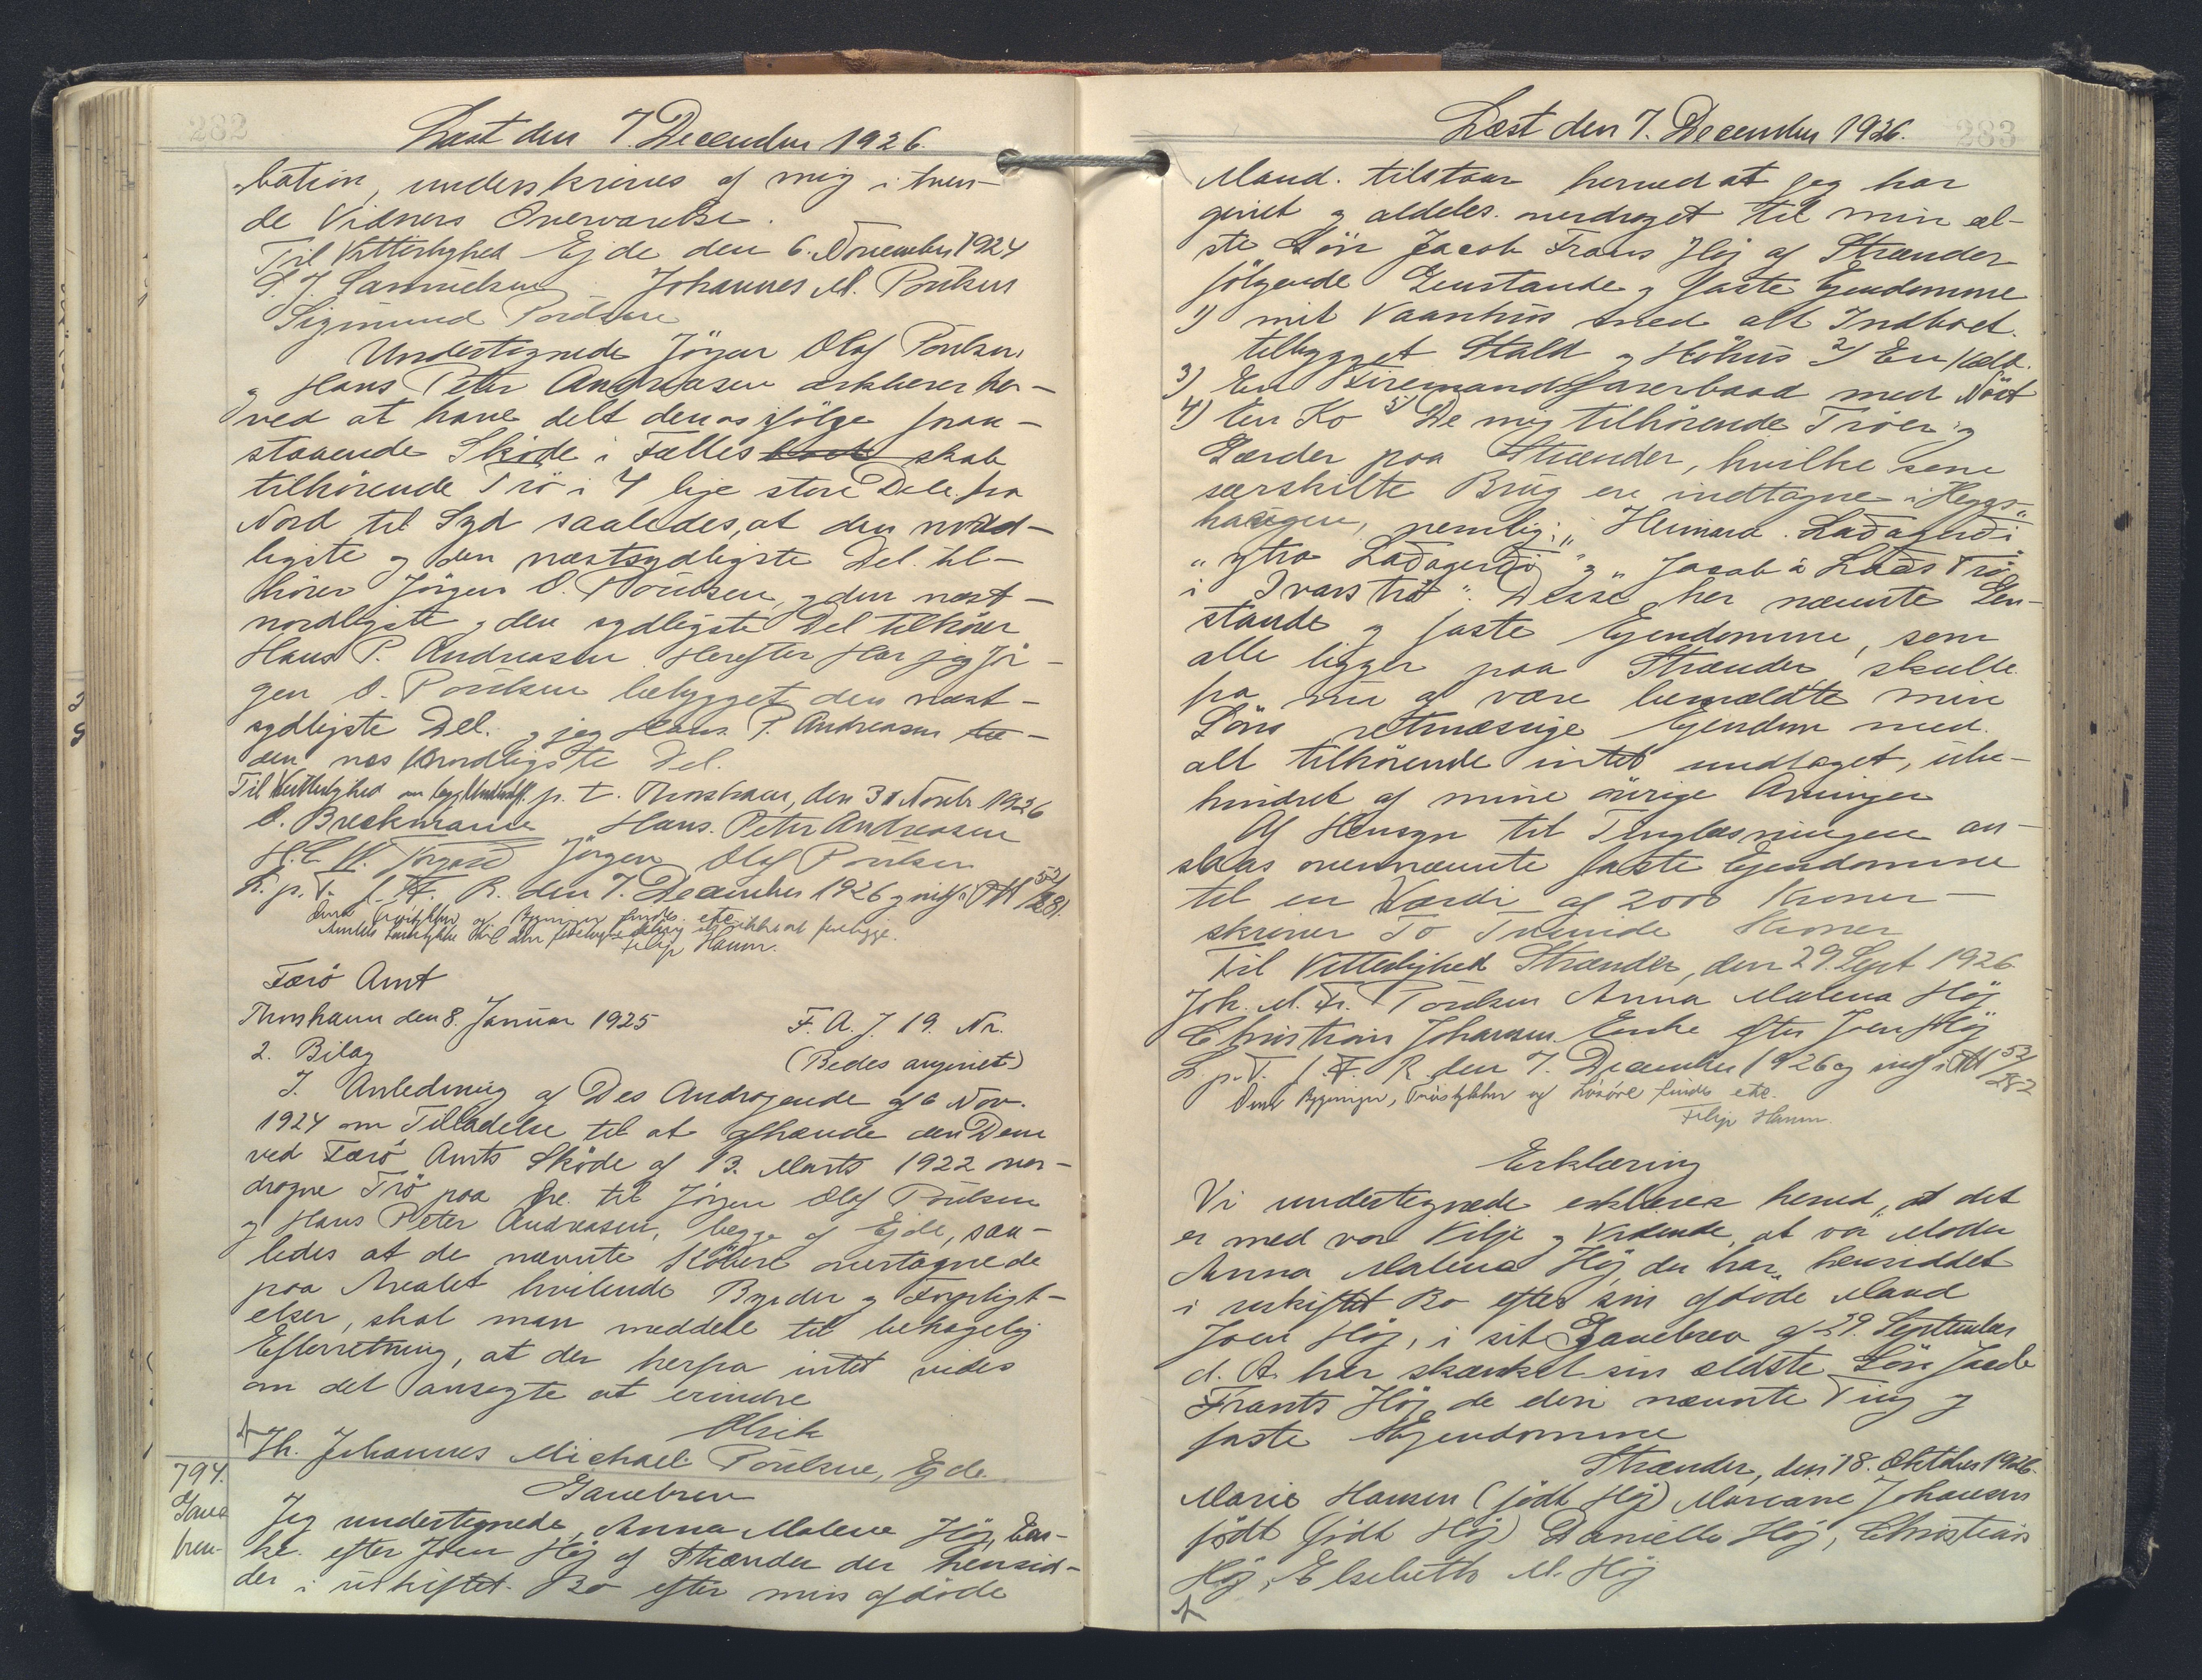 282
Læst den 7. December 1926.
bation, underskrives af mig i tven-
de Vidners Overværelse.
Til Vitterlighed Ejde den 6. November 1924
S. J. Samuelsen Johannes M. Poulsen
Sigmund Poulsen
Undertegnede Jörgen Olaf Poulsen
og Hans Peter Andreasen erklærer her-
ved at have delt den os ifölge foran-
staaende Sköde i Fælles skab
tilhörende Trö i 4 lige store Dele fra
Nord til Syd saaledes, at den nord-
ligste og den næstsydligste Del til-
hörer Jörgen O. Poulsen, og den næst-
nordligste og den sydligste Del tilhörer
Hans P. Andreasen. Herefter har jeg Jör-
gen O. Poulsen bebygget den næst-
sydligste Del. og jeg Hans P. Andreasen
den næstnordligste Del.
Til Vitterlighed om begge Underskr. p. t. Thorshavn, den 30 Novbr 1926
O. Breckmann Hans Peter Andreasen
H. C. W. Jörgen Olaf Poulsen
L. p. T. f. F. R. den 7. December 1926 og indf. i 52/281.
Filip Hamm.
Færö Amt
Thorshavn den 8. Januar 1925 F. A. J. 19. Nr.
2. Bilag (Bedes angivet)
I Anledning af Des Andragende af 6 Nov.
1924 om Tilladelse til at afhænde den Dem
ved Færö Amts Sköde af 13. Marts 1922 over-
dragne Trö paa til Jörgen Olaf Poulsen
og Hans Peter Andreasen, begge af Ejde, saa-
ledes at de nævnte Köbere overtagne de
paa Arealet hvilende Byrder og Forpligt-
elser, skal man meddele til behagelig
Efterretning, at der herfra intet vides
om det ansøgte at erindre
Olrik
Hr. Johannes Michael Poulsen, Ejde
794. Gavebrev
Gave Jeg undertegnede, Anna Malene Höj, En-
brev- ke efter Joen Höj af Strænder der hensid-
der i uskiftet Bo efter min afdöde
283
Læst den 7. December 1926.
Mand. tilstaar herved at jeg har
givet og aldeles overdraget til min æl-
ste Sön Jacob Frans Höj af Strænder
fölgende Genstande og faste Ejendomme
1) mit Vaanhus med alt Indboet.
tilbygget Stald og Höhus 2) En Kælb.
3) En Firemandsfarerbaad med Nöst
4) En Ko 5) De mig tilhörende Tröer og
Gærder paa Strænder, hvilke som
særskilte Brug ere indtagne i Heygs-
haugen, nemlig: „Heimara Ladagerdi
„ytra Ladagerdi" og „Jacob á Lads Trö
i Ivarströ". Disse her nævnte Gen-
stande og faste Ejendomme, som
alle ligger paa Strænder skulle
fra nu af være bemældte min
Söns retmæssige Ejendom med
alt tilhörende intet undtaget, ube-
hindret af mine övrige Arvinger
Af Hensyn til Tinglæsningen an-
slaas ovennævnte faste Ejendomme
til en Værdi af 2000 Kroner -
skriver To Tusinde Kroner
Til Vitterlighed Strænder, den 29. Sept 1926
Joh. M. Fr. Poulsen Anna Malena Höj
Christian Johansen Enke efter Joen Höj
L. p. T. f. F. R. den 7. December 1926 og indf. i 52/282
Om Bygninger, Tröstykker og Lösöre findes ekc.
Filip Hamm.
Erklæring
Vi undertegnede erklærer herved, at det
er med vor Vilje og Vidende, at vor Moder
Anna Malena Höj, der har hensiddet
i uskiftet Bo efter sin afdöde Mand
Joen Höj, i sit Gavebrev af 29. September
d. A. har skænket sin ældste Sön Jacob
Frants Höj de deri nævnte Ting og
faste Ejendomme
Strænder, den 18. Oktober 1926.
Marie Hansen (födt Höj) Mariane Johansen
födt (födt Höj) Danielle Höj, Christian
Höj, Elsebeth M. Höj